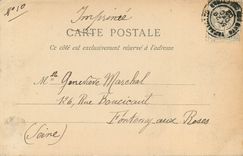 No 10
Imprimé
CARTE POSTALE
Ce côté est exclusivement réservé à l'adresse
Mlle Geneviève Marchal
No 6, Rue Boucicaut
Fontenay-aux-Roses
(Seine)